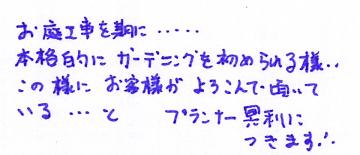 お庭工事を期に・・・・・
本格的に ガーデニングを初められる様・・
この様に お客様が よろこんで頂いて
いる・・・と プランナー冥利に
つきます!・